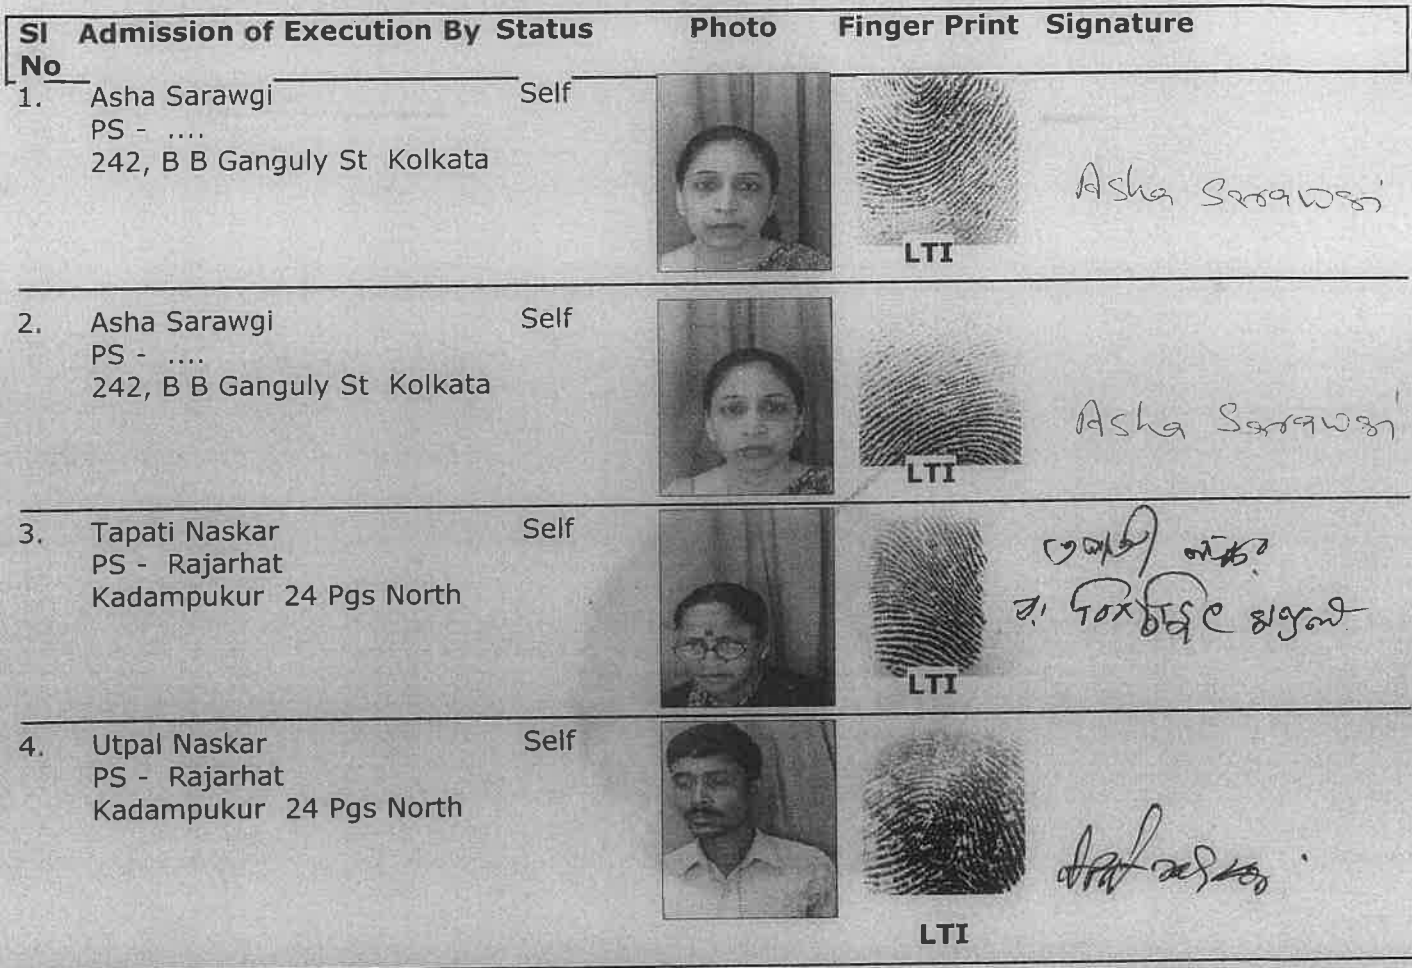 Sl Admission of Execution By Status Photo Finger Print Signature
No
1. Asha Sarawgi Self
PS - ....
242, B B Ganguly St Kolkata
LTI
Asha Sarawgi
2. Asha Sarawgi Self
PS - ....
242, B B Ganguly St Kolkata
LTI
Asha Sarawgi
3. Tapati Naskar Self
PS - Rajarhat
Kadampukur 24 Pgs North
LTI
তপতী নস্কর
4. Utpal Naskar Self
PS - Rajarhat
Kadampukur 24 Pgs North
LTI